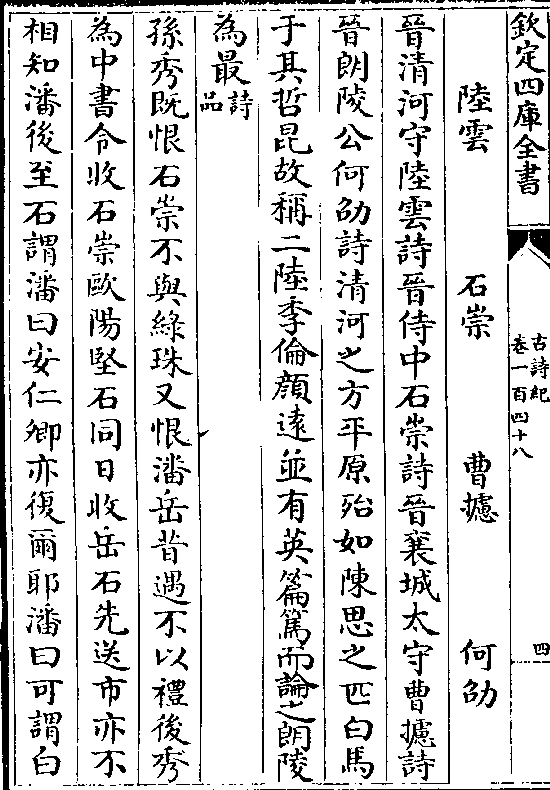 欽定四庫全書
古詩紀
卷一百四十八
四
陸雲 石崇 曹攄 何劭
晉清河守陸雲詩晉侍中石崇詩晉襄城太守曹攄詩
晉朗陵公何劭詩清河之方平原殆如陳思之匹白馬
于其哲昆故稱二陸季倫顔遠並有英篇篤而論之朗陵
為最詩品
孫秀既恨石崇不與綠珠又恨潘岳昔遇不以禮後秀
為中書令收石崇歐陽堅石同日收岳石先送市亦不
相知潘後至石謂潘曰安仁卿亦復爾耶潘曰可謂白